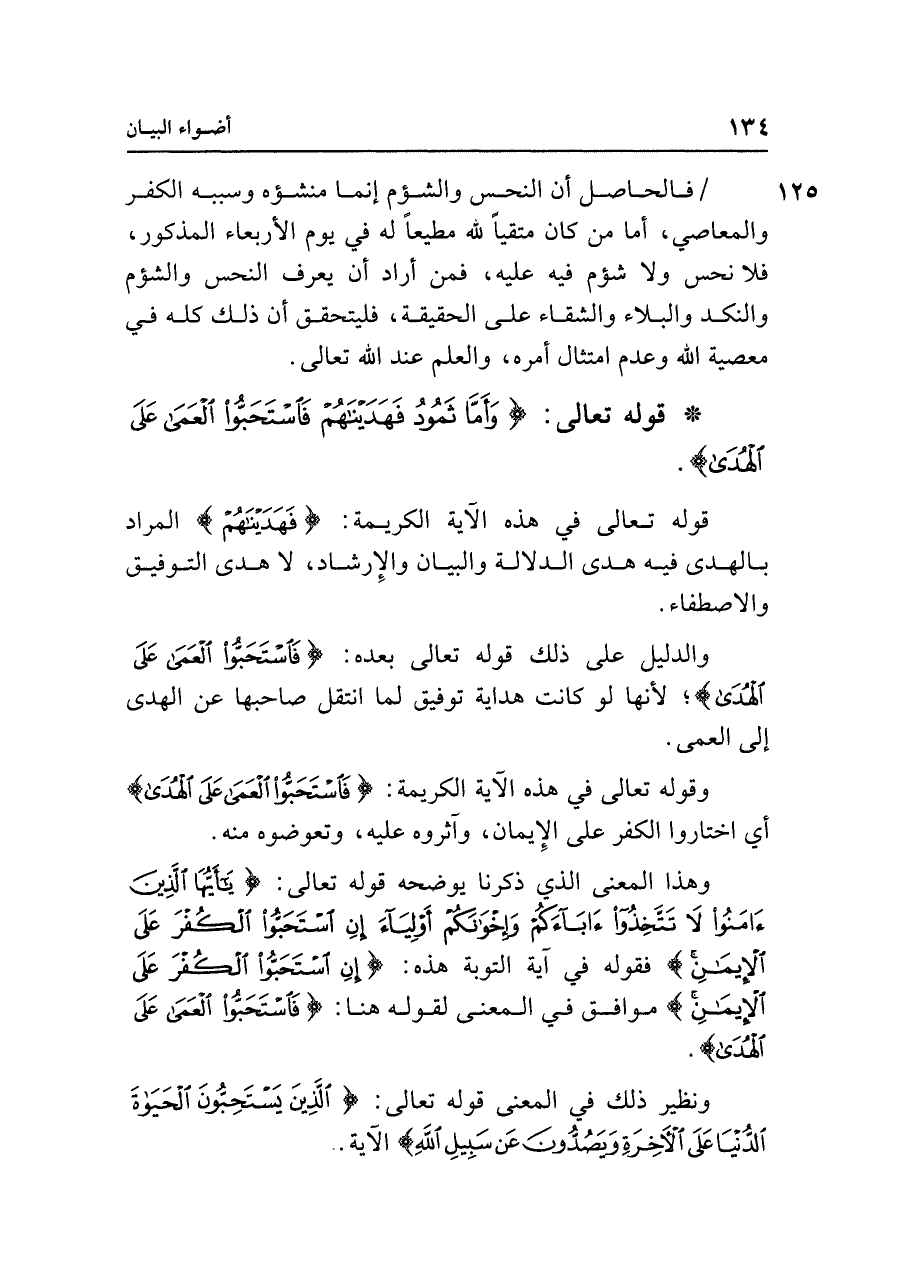 ١٣٤ أضواء البيان
١٢٥ / فالحاصل أن النحس والشؤم إنما منشؤه وسببه الكفر
والمعاصي، أما من كان متقياً لله مطيعاً له في يوم الأربعاء المذكور،
فلا نحس ولا شؤم فيه عليه، فمن أراد أن يعرف النحس والشؤم
والنكد والبلاء والشقاء على الحقيقة، فليتحقق أن ذلك كله في
معصية الله وعدم امتثال أمره، والعلم عند الله تعالى.
* قوله تعالى: ﴿ وَأَمَّا ثَمُودُ فَهَدَيْنَٰهُمْ فَٱسْتَحَبُّوا۟ ٱلْعَمَىٰ عَلَى
ٱلْهُدَىٰ﴾.
قوله تعالى في هذه الآية الكريمة: ﴿ فَهَدَيْنَٰهُمْ ﴾ المراد
بالهدى فيه هدى الدلالة والبيان والإِرشاد، لا هدى التوفيق
والاصطفاء.
والدليل على ذلك قوله تعالى بعده: ﴿ فَٱسْتَحَبُّوا۟ ٱلْعَمَىٰ عَلَى
ٱلْهُدَىٰ﴾؛ لأنها لو كانت هداية توفيق لما انتقل صاحبها عن الهدى
إلى العمى.
وقوله تعالى في هذه الآية الكريمة: ﴿ فَٱسْتَحَبُّوا۟ ٱلْعَمَىٰ عَلَى ٱلْهُدَىٰ﴾
أي اختاروا الكفر على الإِيمان، وآثروه عليه، وتعوضوه منه.
وهذا المعنى الذي ذكرنا يوضحه قوله تعالى: ﴿ يَٰٓأَيُّهَا ٱلَّذِينَ
ءَامَنُوا۟ لَا تَتَّخِذُوٓا۟ ءَابَآءَكُمْ وَإِخْوَٰنَكُمْ أَوْلِيَآءَ إِنِ ٱسْتَحَبُّوا۟ ٱلْكُفْرَ عَلَى
ٱلْإِيمَٰنِ ۚ ﴾ فقوله في آية التوبة هذه: ﴿ إِنِ ٱسْتَحَبُّوا۟ ٱلْكُفْرَ عَلَى
ٱلْإِيمَٰنِ ۚ ﴾ موافق في المعنى لقوله هنا: ﴿ فَٱسْتَحَبُّوا۟ ٱلْعَمَىٰ عَلَى
ٱلْهُدَىٰ﴾.
ونظير ذلك في المعنى قوله تعالى: ﴿ ٱلَّذِينَ يَسْتَحِبُّونَ ٱلْحَيَوٰةَ
ٱلدُّنْيَا عَلَى ٱلْءَاخِرَةِ وَيَصُدُّونَ عَن سَبِيلِ ٱللَّهِ﴾ الآية..